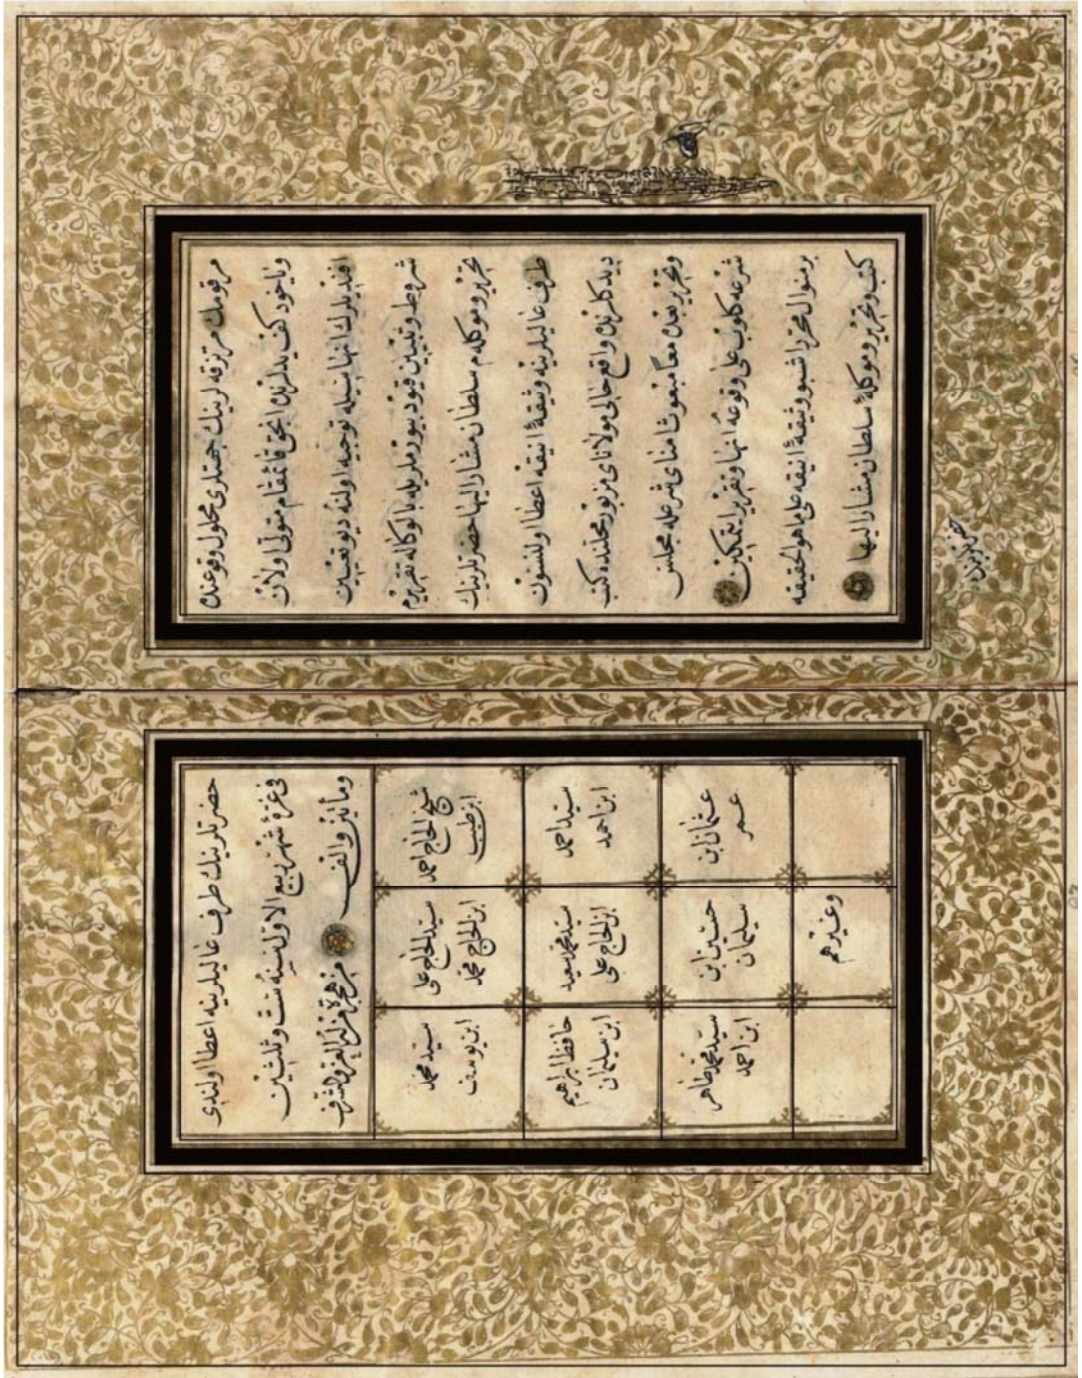 مرقومك مرتزقه لرينك جهتلرى محلول وقوعنده
وياخود كف يدلرنده الحق قائمقام متولى اولان
افنديلرك انهاسيله توجيه اولنه ديو تعيين
شروط وتبيين قيود بيورملريله بالوكاله تقريرم
تحرير وموكله م سلطان مشار اليها حضرتلرينك
طرف عاليلرينه وثيقۀ انيقه اعطا اولنسون
ديدكلرنده واقع حالى مولاناى مزبور محلنده كتب
وتحرير بعده معا مبعوث امناى شرعله مجلس
شرعه كلوب على وقوعه انها وتقرير ايتمكين
برمنوال محرر اشبو وثيقۀ انيقه على ما هو الحقيقه
كتب وتحرير وموكلۀ سلطان مشار اليها
حضرتلرينك طرف عاليلرينه اعطا اولندى
فى غرة شهر ربيع الاول لسنه ست وثلثين
ومأتين والف من هجرة من له العز والشرف
شيخ الحاج احمد ابن طيب
سيد الحاج على ابن الحاج محمد
سيد محمد ابن يوسف
سيد احمد ابن احمد
سيد محمد سعيد ابن الحاج على
حافظ ابراهيم ابن سليمان
عثمان بن عمر
حسين ابن سليمان
سيد محمد طاهر ابن احمد
وغيرهم